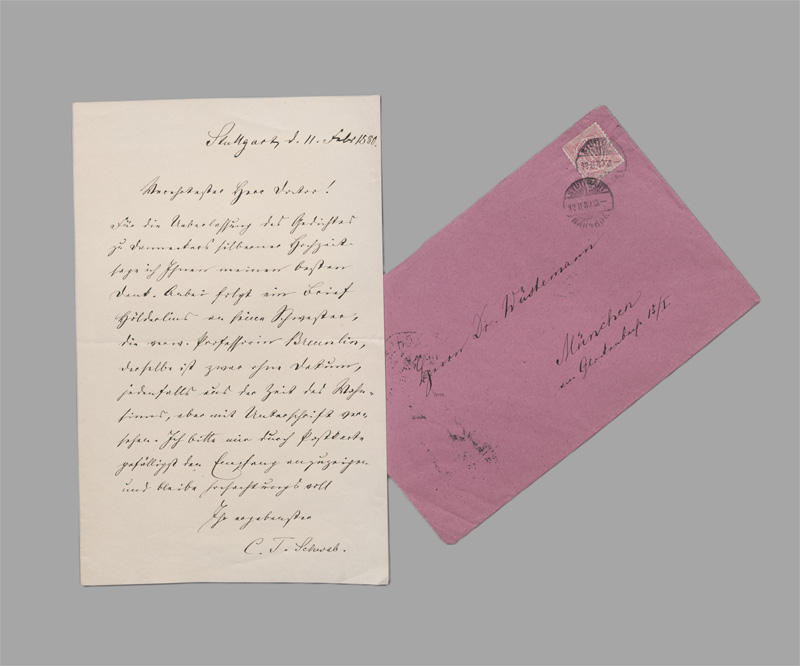 Stuttgart, d. 11. Febr. 1880.
Verehrtester Herr Doctor!
Für die Ueberlassung des Gedichtes
zu Danneckers silberner Hochzeit
sage ich Ihnen meinen besten
Dank. Anbei folgt ein Brief
Hölderlins an seine Schwester,
die verw. Professorin Breunlin,
derselbe ist zwar ohne Datum,
jedenfalls aus der Zeit des Wahn-
sinnes, aber mit Unterschrift ver-
sehen. Ich bitte mir durch Postkarte
gefälligst den Empfang anzuzeigen
und bleibe hochachtungsvoll
Ihr ergebenster
C. T. Schwab.
STUTTGART
STUTTGART
Herrn Dr. Wüstemann
München
am Glockenbach 15/I